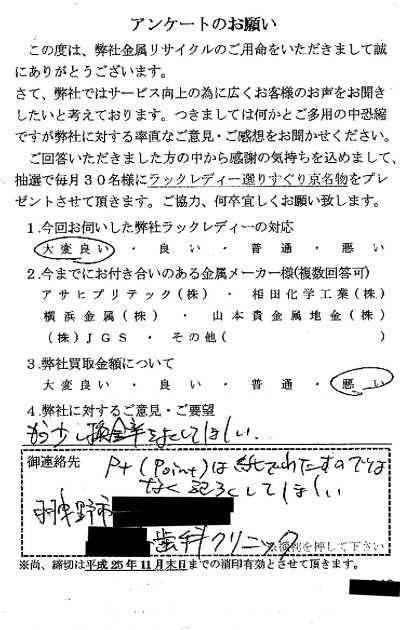 アンケートのお願い
この度は、弊社金属リサイクルのご用命をいただきまして誠
にありがとうございます。
さて、弊社ではサービス向上の為に広くお客様のお声をお聞き
したいと考えております。つきましては何かとご多用の中恐縮
ですが弊社に対する率直なご意見・ご感想をお聞かせください。
ご回答いただきました方の中から感謝の気持ちを込めまして、
抽選で毎月30名様にラックレディー選りすぐり京名物をプレ
ゼントさせて頂きます。ご協力、何卒宜しくお願い致します。
1.今回お伺いした弊社ラックレディーの対応
大変良い ・ 良い ・ 普通 ・ 悪い
2.今までにお付き合いのある金属メーカー様(複数回答可)
アサヒプリテック(株) ・ 相田化学工業(株)
横浜金属(株) ・ 山本貴金属地金(株)
(株)JGS ・ その他( )
3.弊社買取金額について
大変良い ・ 良い ・ 普通 ・ 悪い
4.弊社に対するご意見・ご要望
もう少し換金率をよくしてほしい.
御連絡先
Pt (Point)は
なく してほしい
羽曳野市
歯科クリニック
※検印を押して下さい
※尚、締切は平成25年11月末日までの消印有効とさせて頂きます。